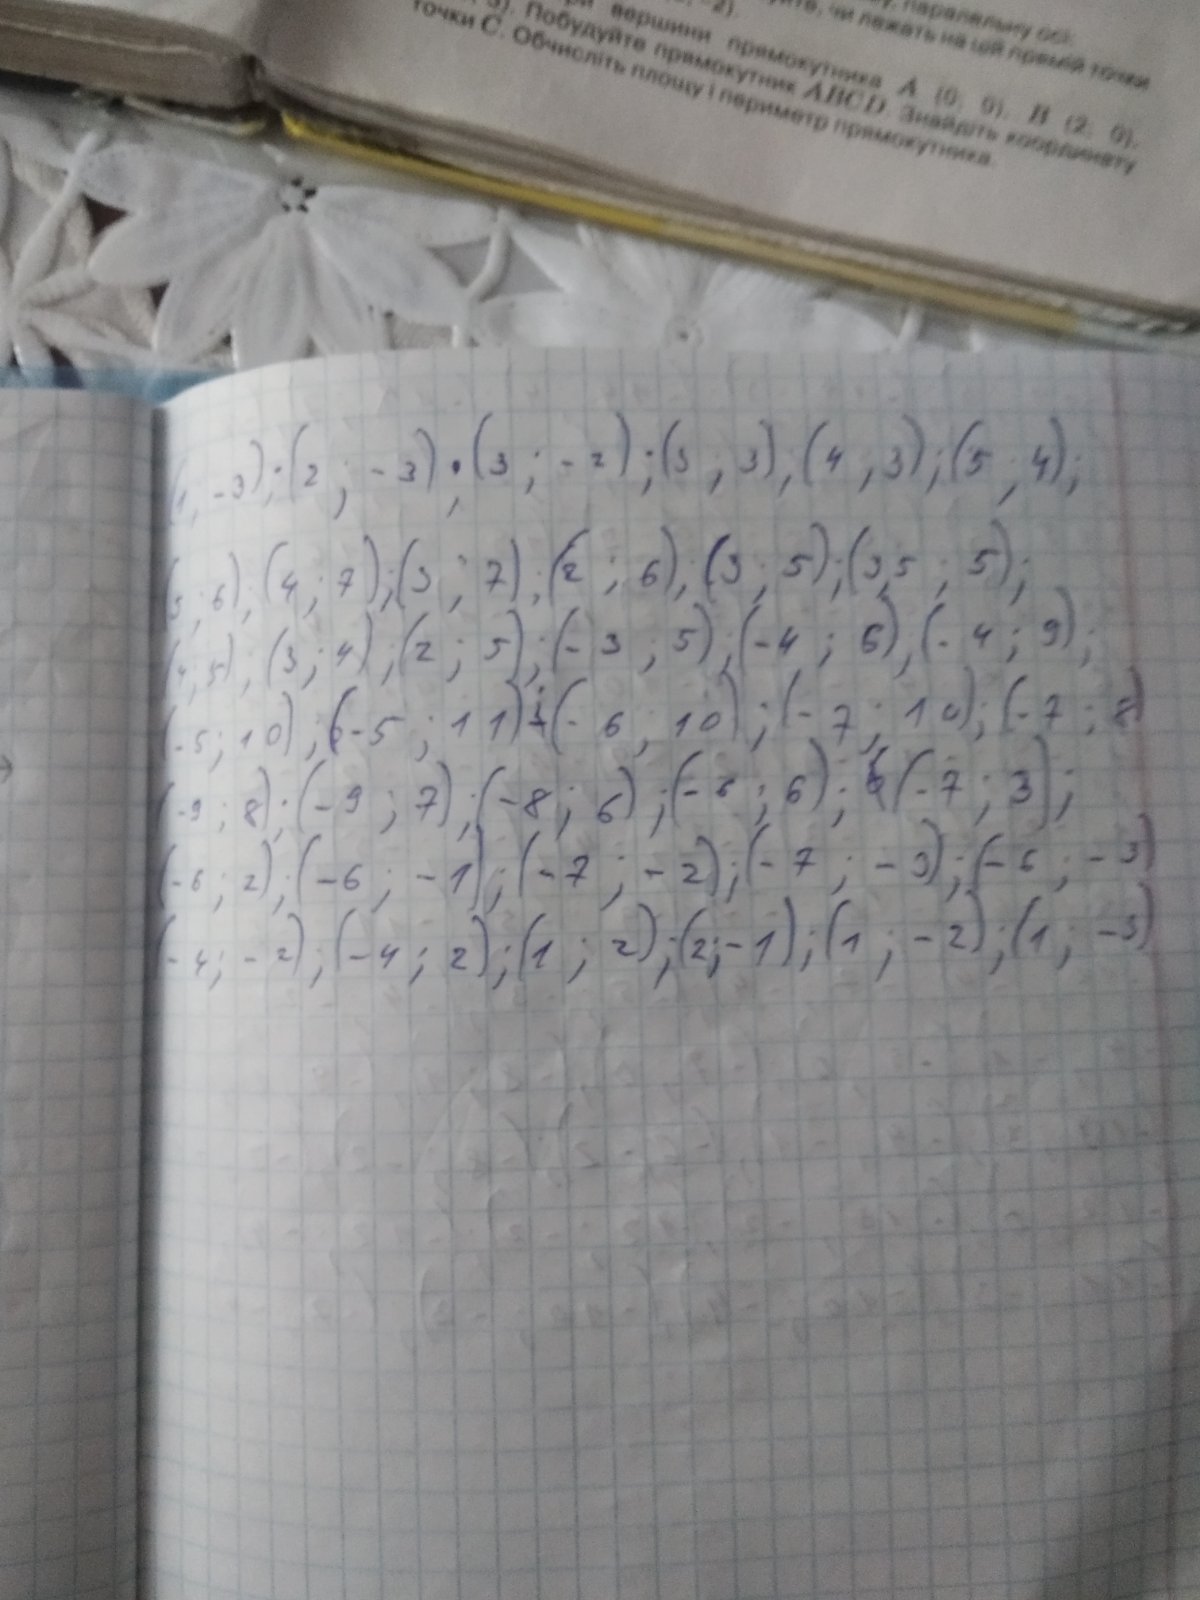 у, паралельну осі
чи лежать на цій прямій точки
; -2).
вершини прямокутника A (0; 0), B (2; 0),
3). Побудуйте прямокутник ABCD. Знайдіть координату
точки C. Обчисліть площу і периметр прямокутника.
(1; -3); (2; -3); (3; -2); (3; 3); (4; 3); (5; 4);
(5; 6); (4; 7); (3; 7); (2; 6); (3; 5); (3,5; 5);
(4; 5); (3; 4); (2; 5); (-3; 5); (-4; 6); (-4; 9);
(-5; 10); (-5; 11); (-6; 10); (-7; 10); (-7; 8)
(-9; 8); (-9; 7); (-8; 6); (-6; 6); (-7; 3);
(-6; 2); (-6; -1); (-7; -2); (-7; -3); (-6; -3)
(-4; -2); (-4; 2); (1; 2); (2; -1); (1; -2); (1; -3)